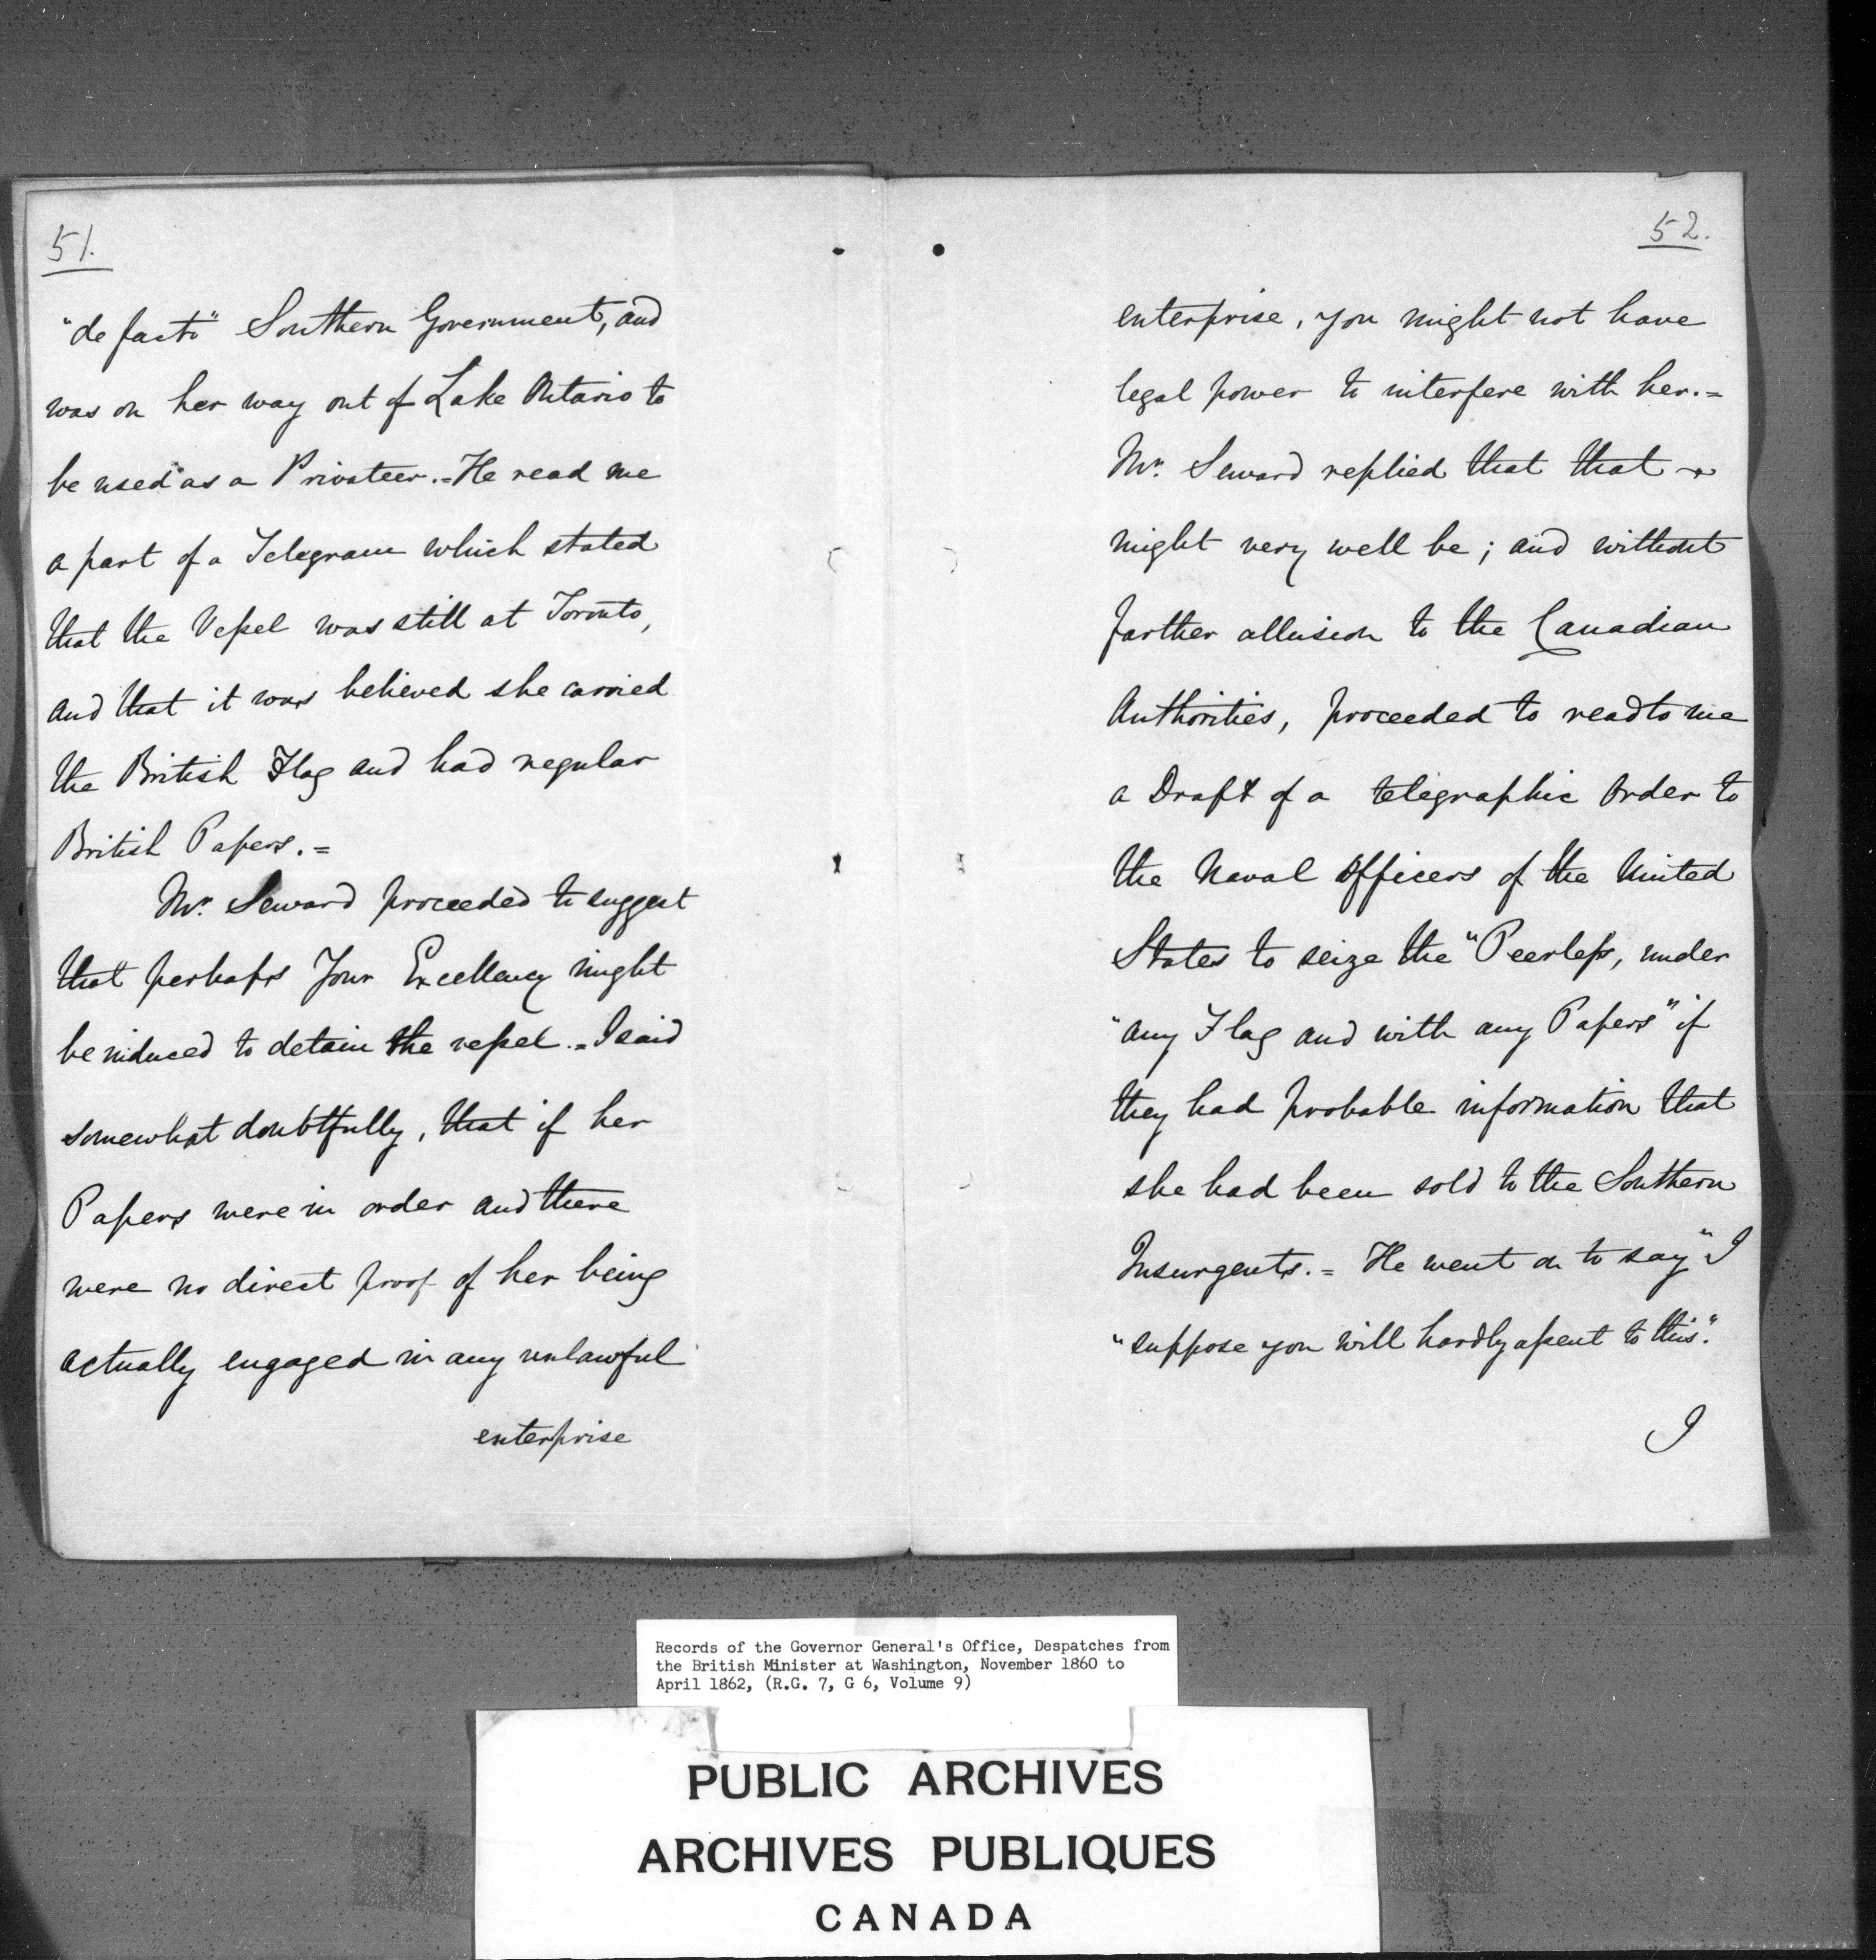 51.
"de facto" Southern Government, and
was on her way out of Lake Ontario to
be used as a Privateer.=He read me
a part of a Telegram which stated
that the Vessel was still at Toronto,
and that it was believed she carried
the British Flag and had regular
British Papers.=
Mr. Seward proceeded to suggest
that perhaps Your Excellency might
be induced to detain the vessel.=I said
somewhat doubtfully, that if her
Papers were in order and there
were no direct proof of her being
actually engaged in any unlawful
enterprise
52.
enterprise, you might not have
legal power to interfere with her.=
Mr. Seward replied that that
might very well be; and without
farther allusion to the Canadian
Authorities, proceeded to read to me
a Draft of a telegraphic Order to
the Naval Officers of the United
States to seize the "Peerless, under
"any Flag and with any Papers" if
they had probable information that
she had been sold to the Southern
Insurgents.= He went on to say "I
"suppose you will hardly assent to this".
I
Records of the Governor General's Office, Despatches from
the British Minister at Washington, November 1860 to
April 1862, (R.G. 7, G 6, Volume 9)
PUBLIC ARCHIVES
ARCHIVES PUBLIQUES
CANADA